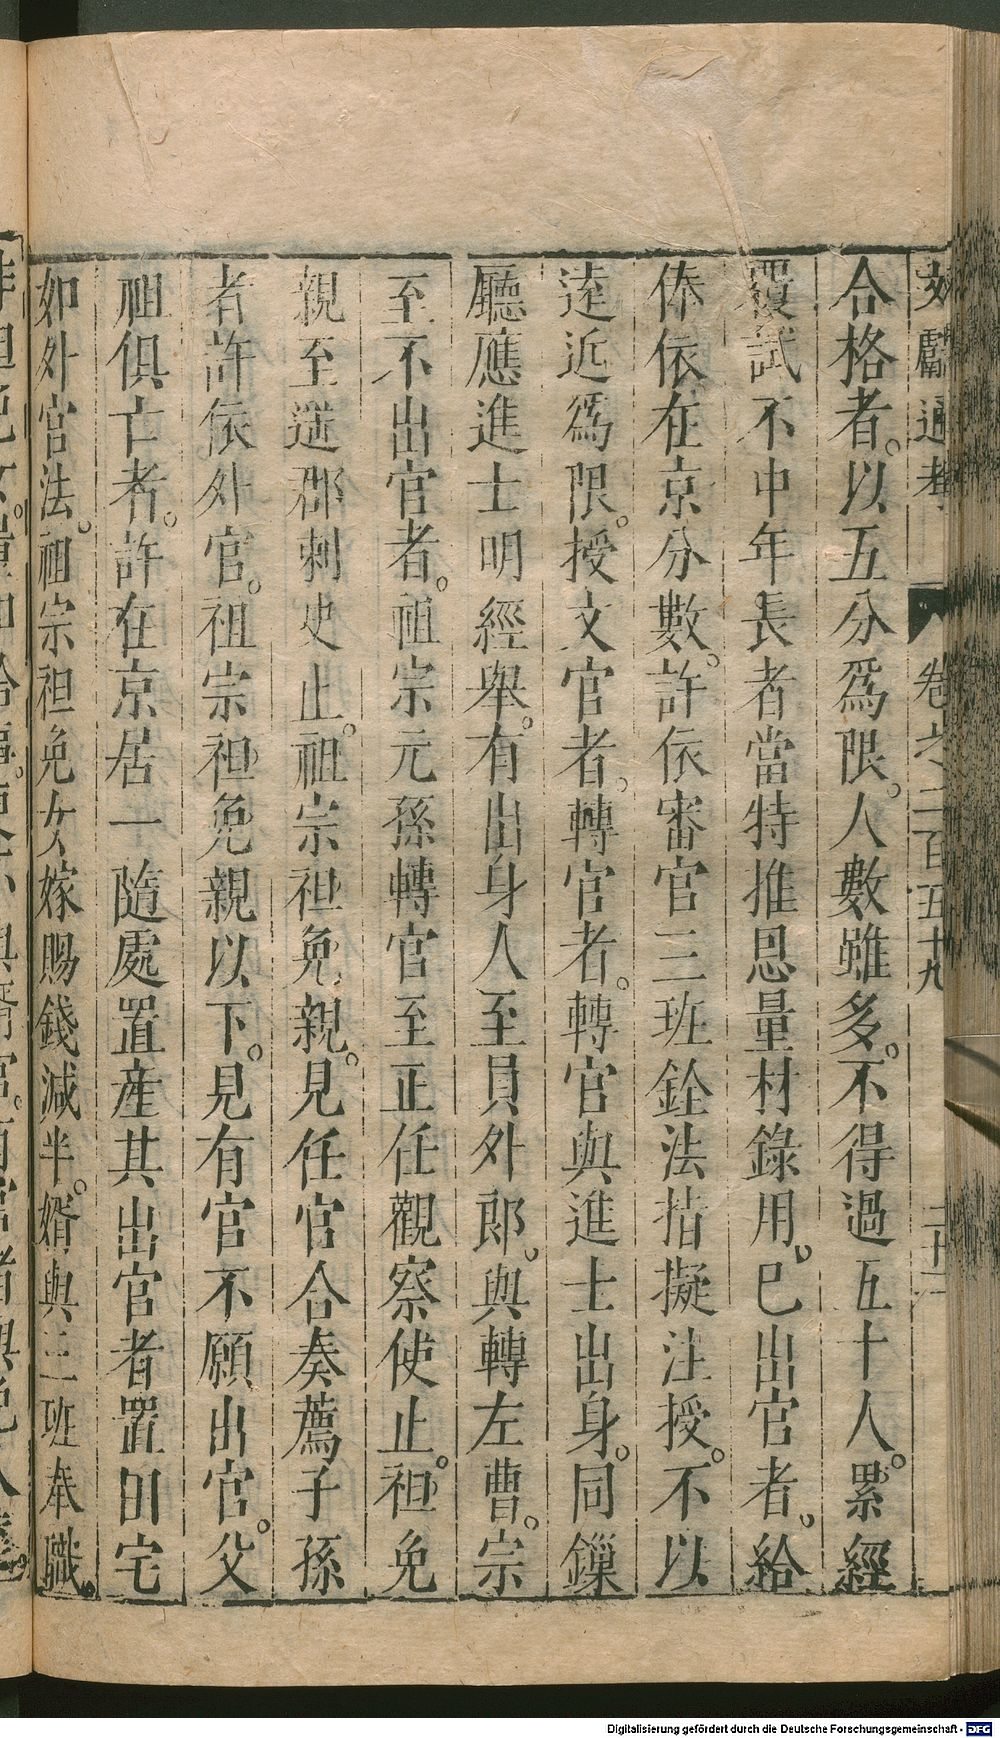 文獻通考 卷之二百五十九 二十一
合格者。以五分爲限。人數雖多。不得過五十人。累經
覆試不中年長者當特推恩量材錄用。已出官者。給
俸依在京分數。許依審官三班銓法指擬注授。不以
逺近爲限。授文官者。轉官者。轉官與進士出身。同鏁
廳應進士明經舉。有出身人至員外郎。與轉左曹。宗
至不出官者。祖宗元孫轉官至正任觀察使止。袒免
親至遥郡刺史止。祖宗袒免親。見任官合奏薦子孫
者許依外官。祖宗袒免親以下。見有官不願出官。父
祖俱亡者。許在京居一隨處置産其出官者置田宅
如外官法。祖宗袒免女嫁賜錢減半。婿與三班奉職。
Digitalisierung gefördert durch die Deutsche Forschungsgemeinschaft - DFG